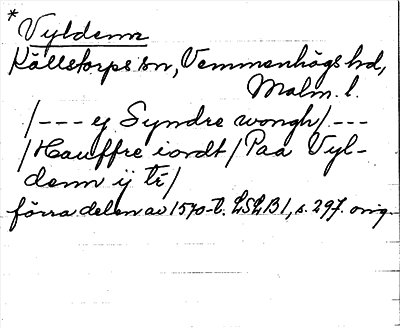 * Vyldenn
Källstorps sn, Vemmenhögs hd,
Malm. l.
/--- ej Syndre wongh/---
/Hauffre iordt/ Paa Vyl-
denn ij tr/
förra delen av 1570-t. LSLB1, s. 297. orig.